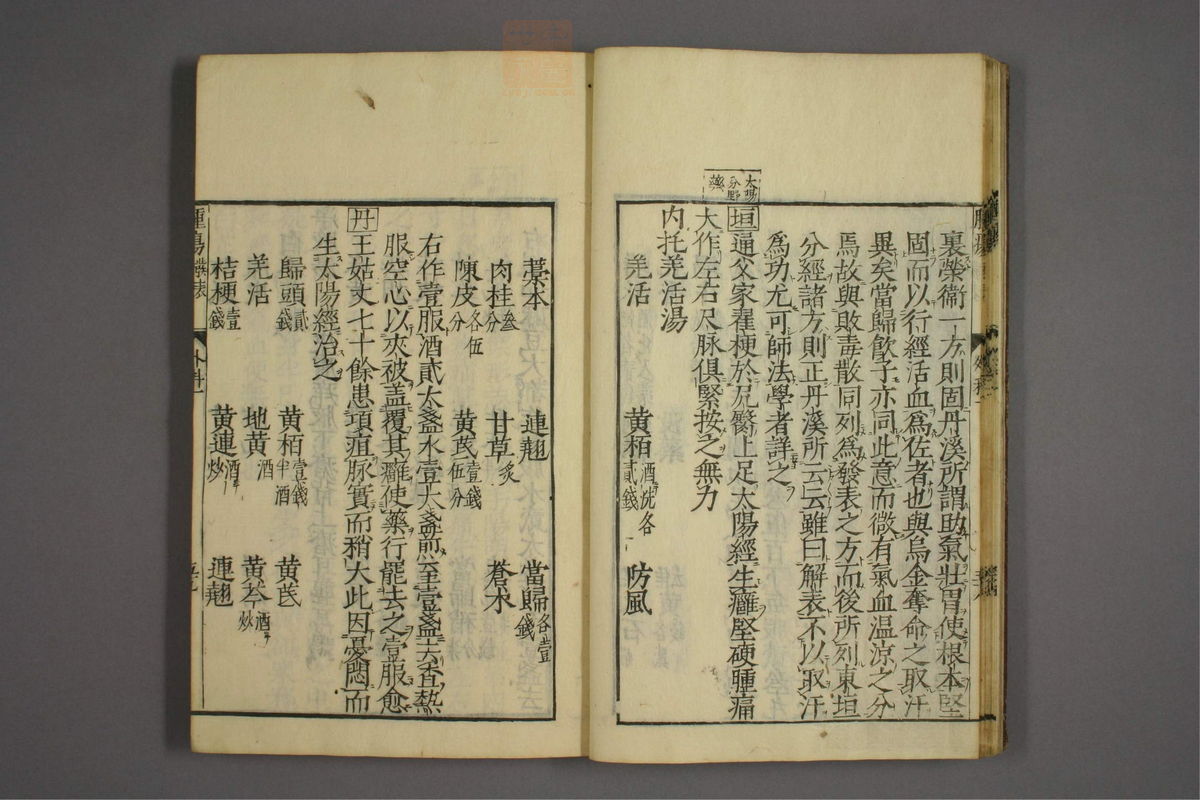 裏榮衞一方則固丹溪所謂助氣壯胃使根本堅
固而以行經活血爲佐者也與烏金奪命之取汗
異矣當歸飮子亦同此意而微有氣血温涼之分
焉故與敗毒散同列爲發表之方而後所列東垣
分經諸方則正丹溪所云云雖曰解表不以取汗
爲功尤可師法學者詳之
太陽分野藥
垣 通父家翟梗於尻臀上足太陽經生癰堅硬腫痛
大作左右尺脉俱緊按之無力
内托羌活湯
羌活 黄栢酒洗各貳錢 防風
藁本 連翹 當歸各壹錢
肉桂叁分 甘草炙 蒼朮
陳皮各伍分 黄芪壹錢伍分
右作壹服酒貳大盞水壹大盞煎至壹盞去査熱
服空心以夾被盖覆其癰使藥行罷去之壹服愈
丹 王姑丈七十餘患項疽脉實而稍大此因憂悶而
生太陽經治之
歸頭貳錢 黄栢壹錢半酒 黄芪
羌活 地黄酒 黄芩酒炒
桔梗壹錢 黄連酒炒 連翹